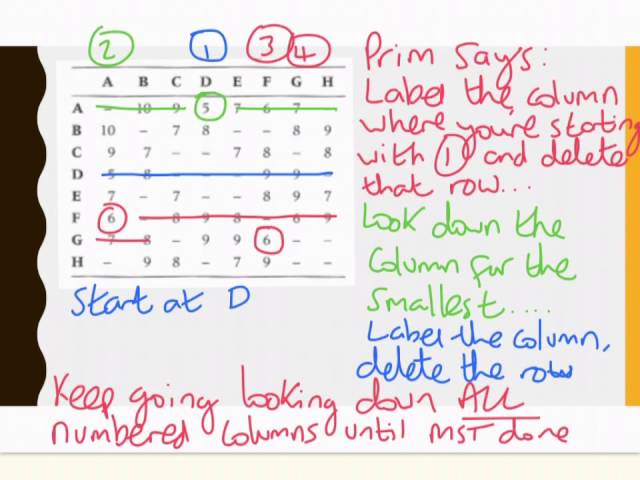 2 1 3 4
A B C D E F G H
A – 10 9 5 7 6 7 –
B 10 – 7 8 – – 8 9
C 9 7 – – 7 8 – 8
D 5 8 – – – 9 9 –
E 7 – 7 – – 8 9 7
F 6 – 8 9 8 – 6 9
G 7 8 – 9 9 6 – –
H – 9 8 – 7 9 – –
Start at D
Prim says:
Label the column
where you're starting
with 1 and delete
that row...
Look down the
Column for the
smallest....
Label the column,
delete the row
Keep going looking down ALL
numbered columns until MST done